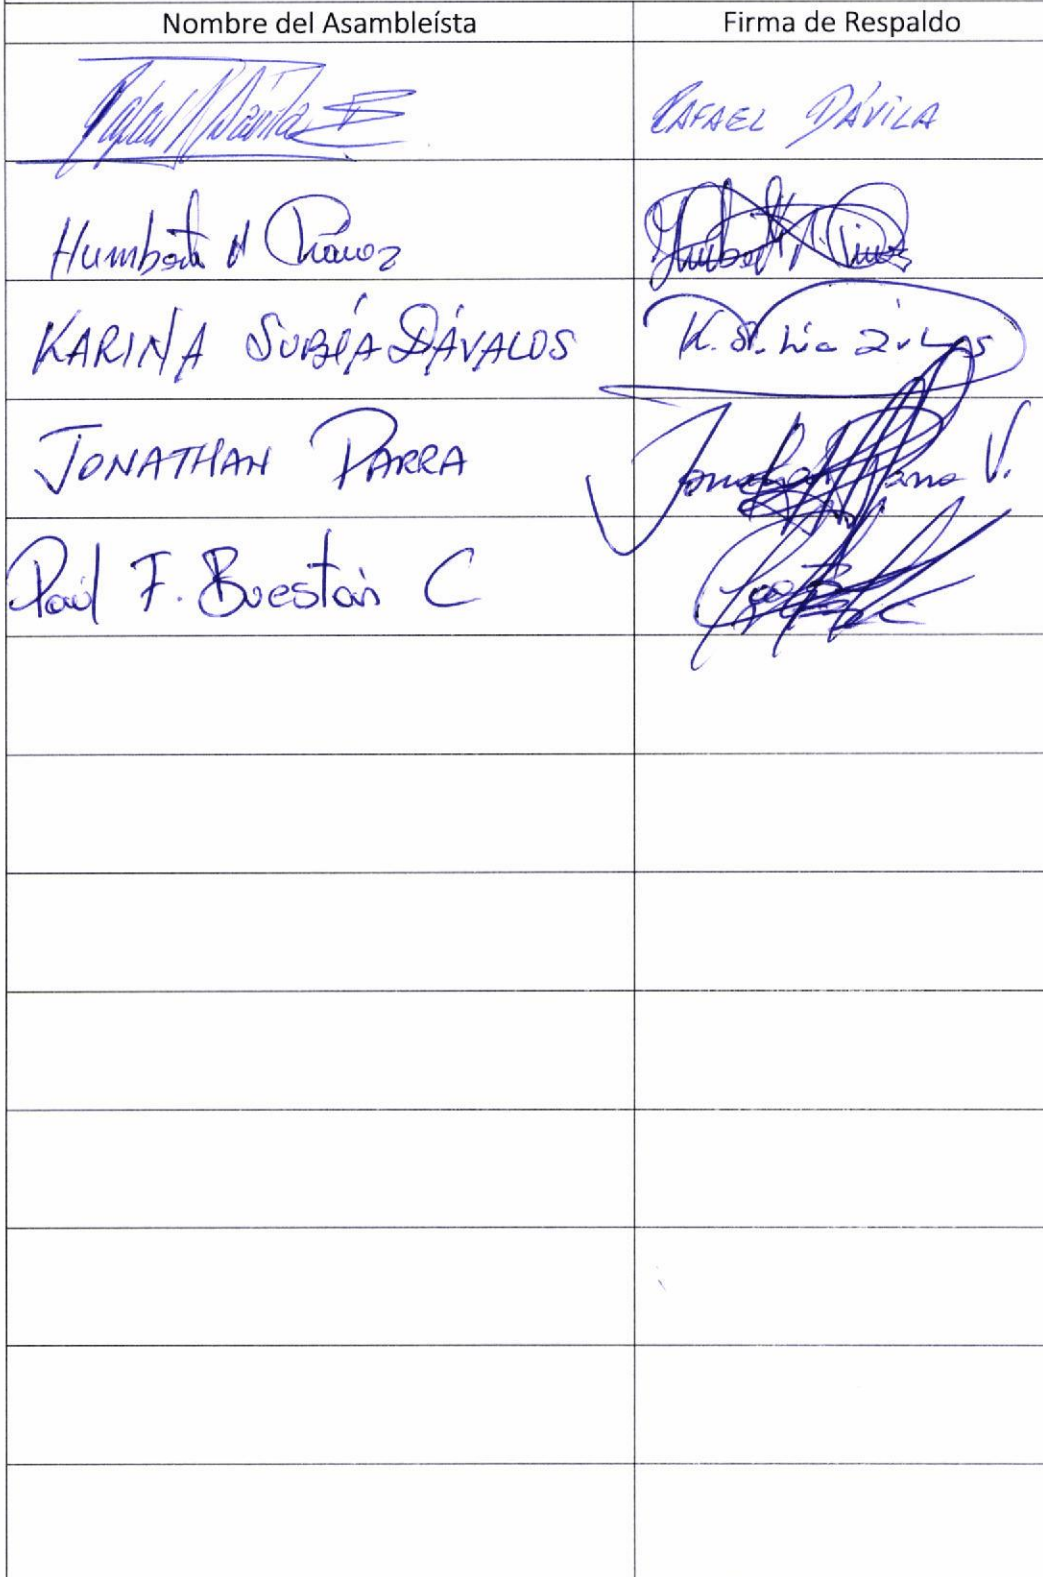 Nombre del Asambleísta Firma de Respaldo
Rafael Dávila RAFAEL DÁVILA
Humberto
KARINA SUBÍA DÁVALOS
JONATHAN PARRA V.
Paúl F. Buestán C